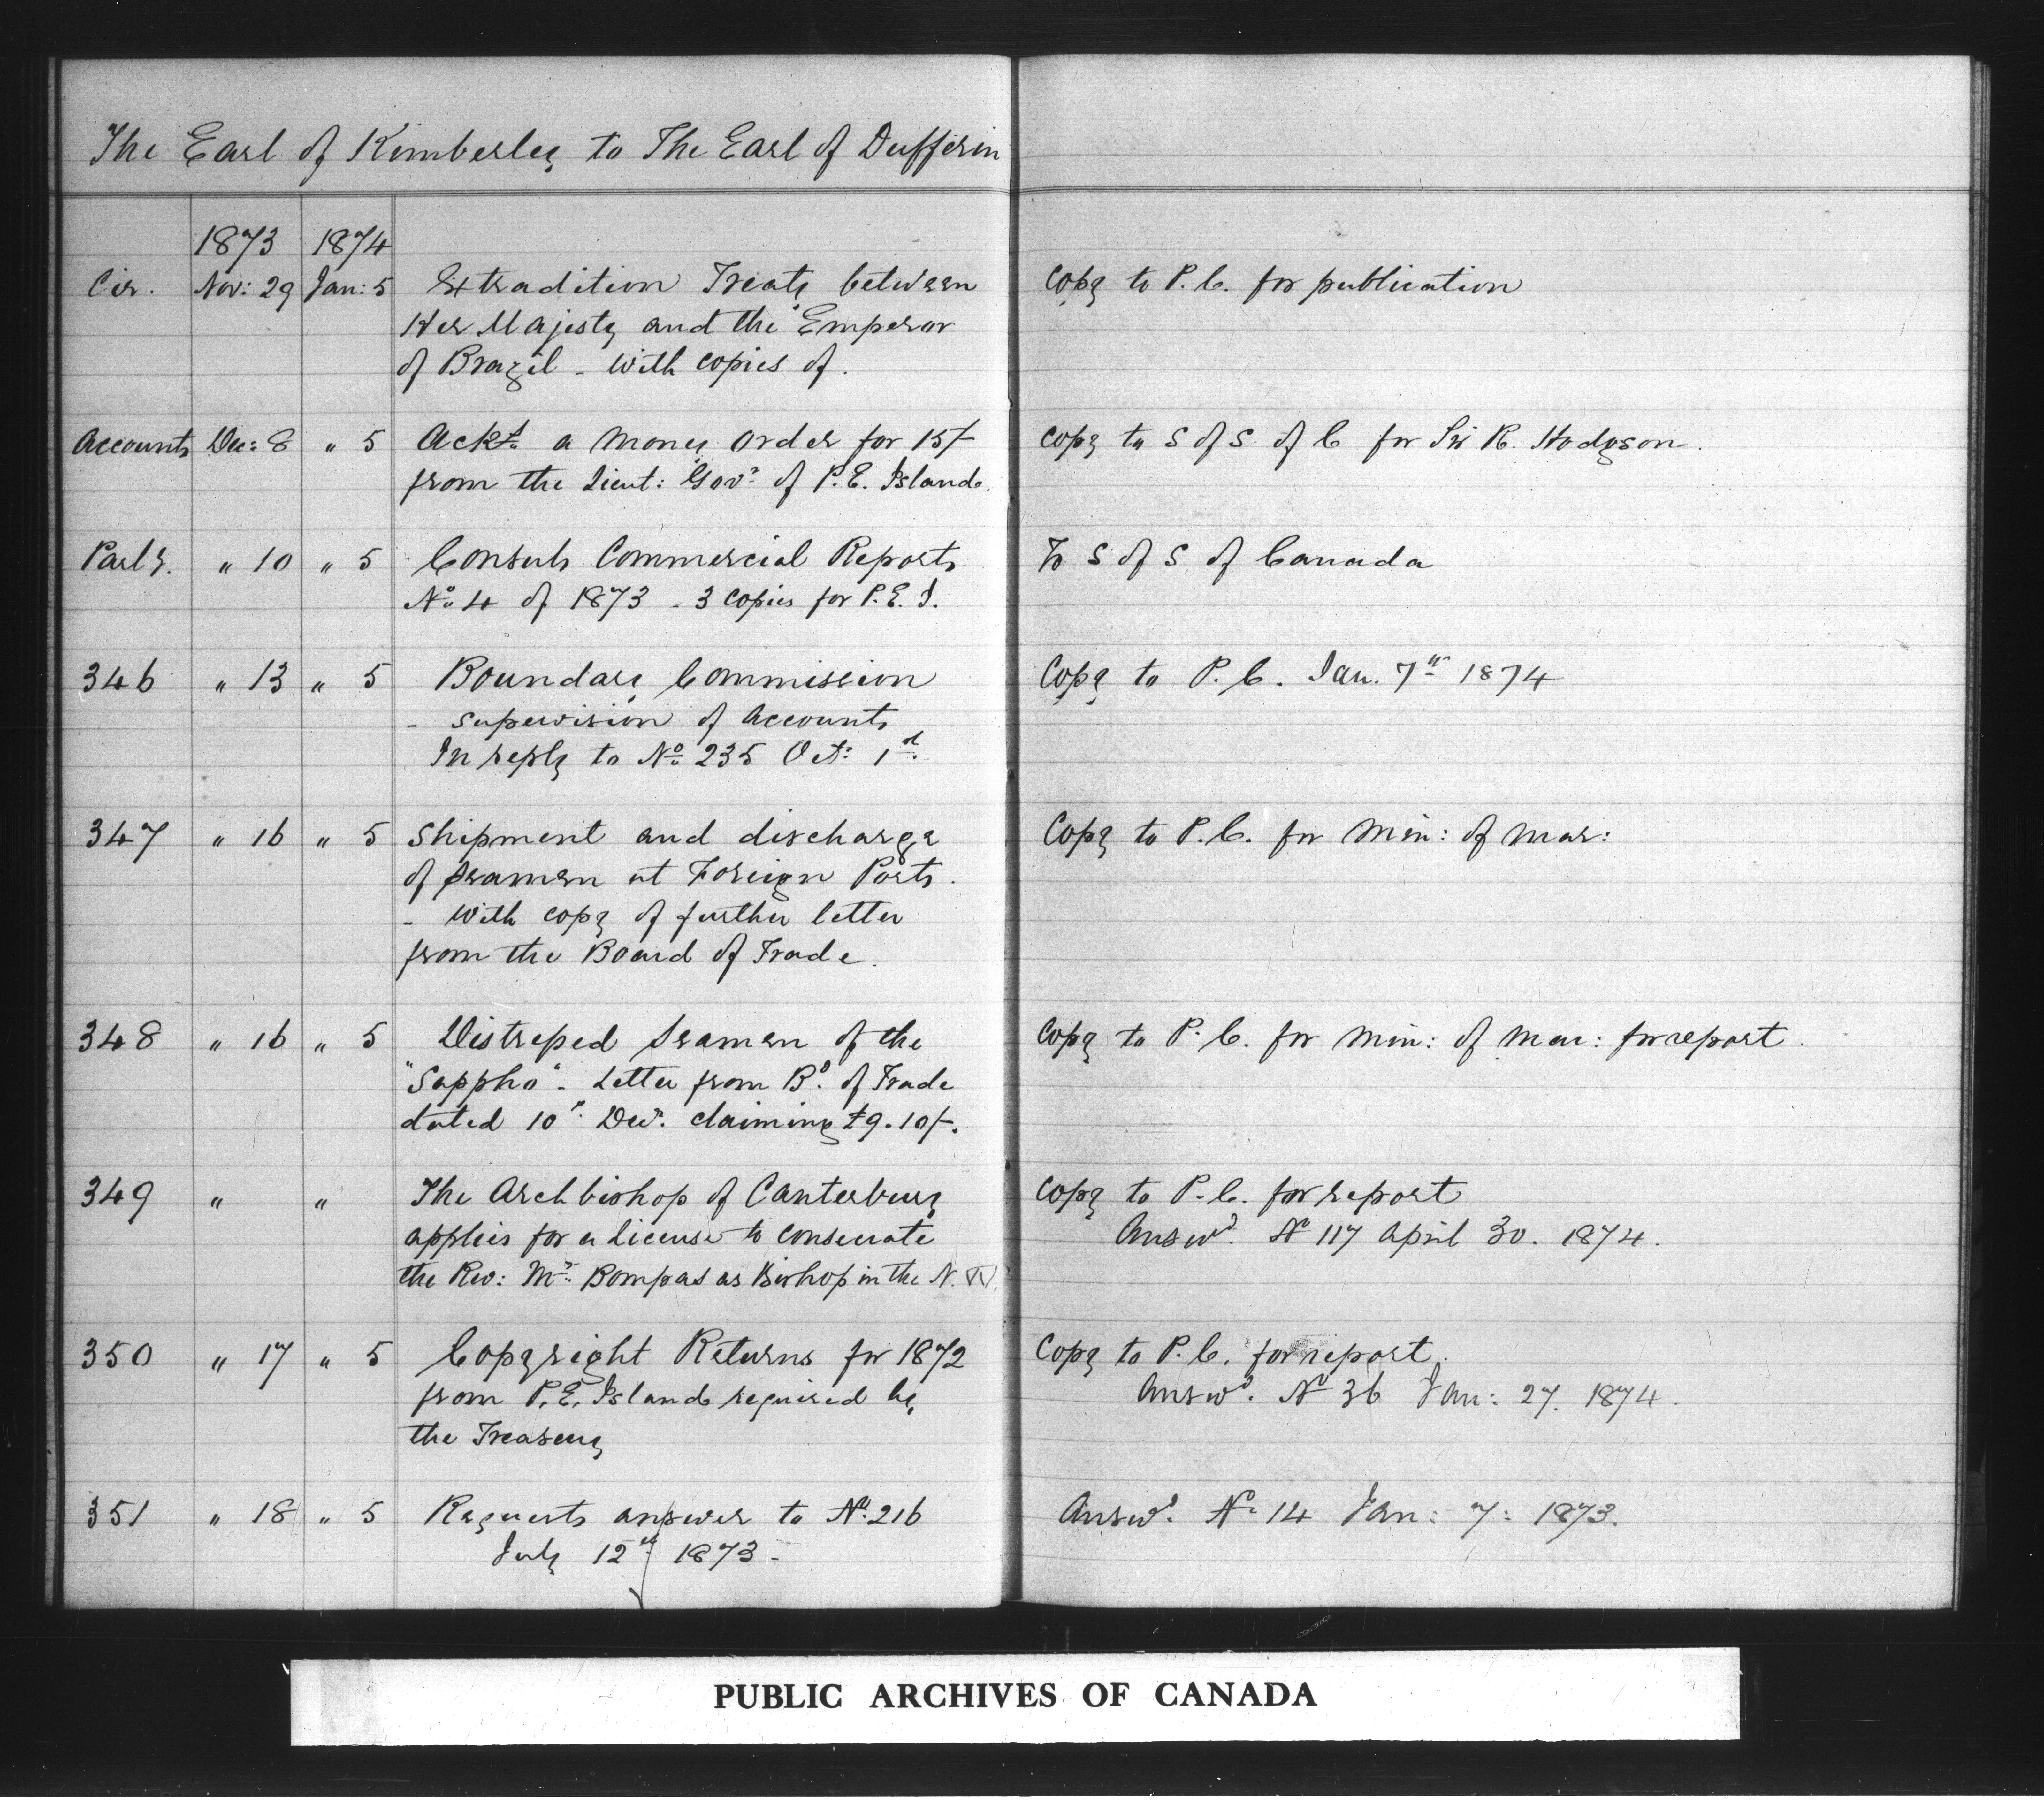 The Earl of Kimberley to The Earl of Dufferin
1873 1874
Cir. Nov: 29 Jan: 5 Extradition Treaty between Copy to P. C. for publication
Her Majesty and the Emperor
of Brazil - with copies of.
Accounts Dec: 8 " 5 Ackt. a Money order for 15/- Copy to S of S. of C for Sir R. Hodgson.
from the Lieut: Govr. of P.E. Island.
Parly. " 10 " 5 Consuls Commercial Reports To S of S. of Canada
No. 4 of 1873 - 3 copies for P.E.I.
346 " 13 " 5 Boundary Commission Copy to P. C. Jan. 7th 1874
- supervision of accounts
In reply to No. 235 Oct: 1st.
347 " 16 " 5 Shipment and discharge Copy to P.C. for Min: of Mar:
of seamen at Foreign Ports.
- with copy of further letter
from the Board of Trade.
348 " 16 " 5 Distressed Seamen of the Copy to P. C. for Min: of Mar: for report.
"Sappho" - Letter from Bd. of Trade
dated 10th Decr. claiming £9.10/-.
349 " " The Archbishop of Canterbury Copy to P. C. for report
applies for a License to consecrate Answd. No 117 April 30. 1874.
the Rev: Mr. Bompas as Bishop in the N. W.
350 " 17 " 5 Copyright Returns for 1872 Copy to P. C. for report.
from P.E. Island required by Answd. No 36 Jan: 27. 1874.
the Treasury
351 " 18 " 5 Requests answer to No. 216 Answd. No. 14 Jan: 7: 1873.
July 12th 1873 -
PUBLIC ARCHIVES OF CANADA